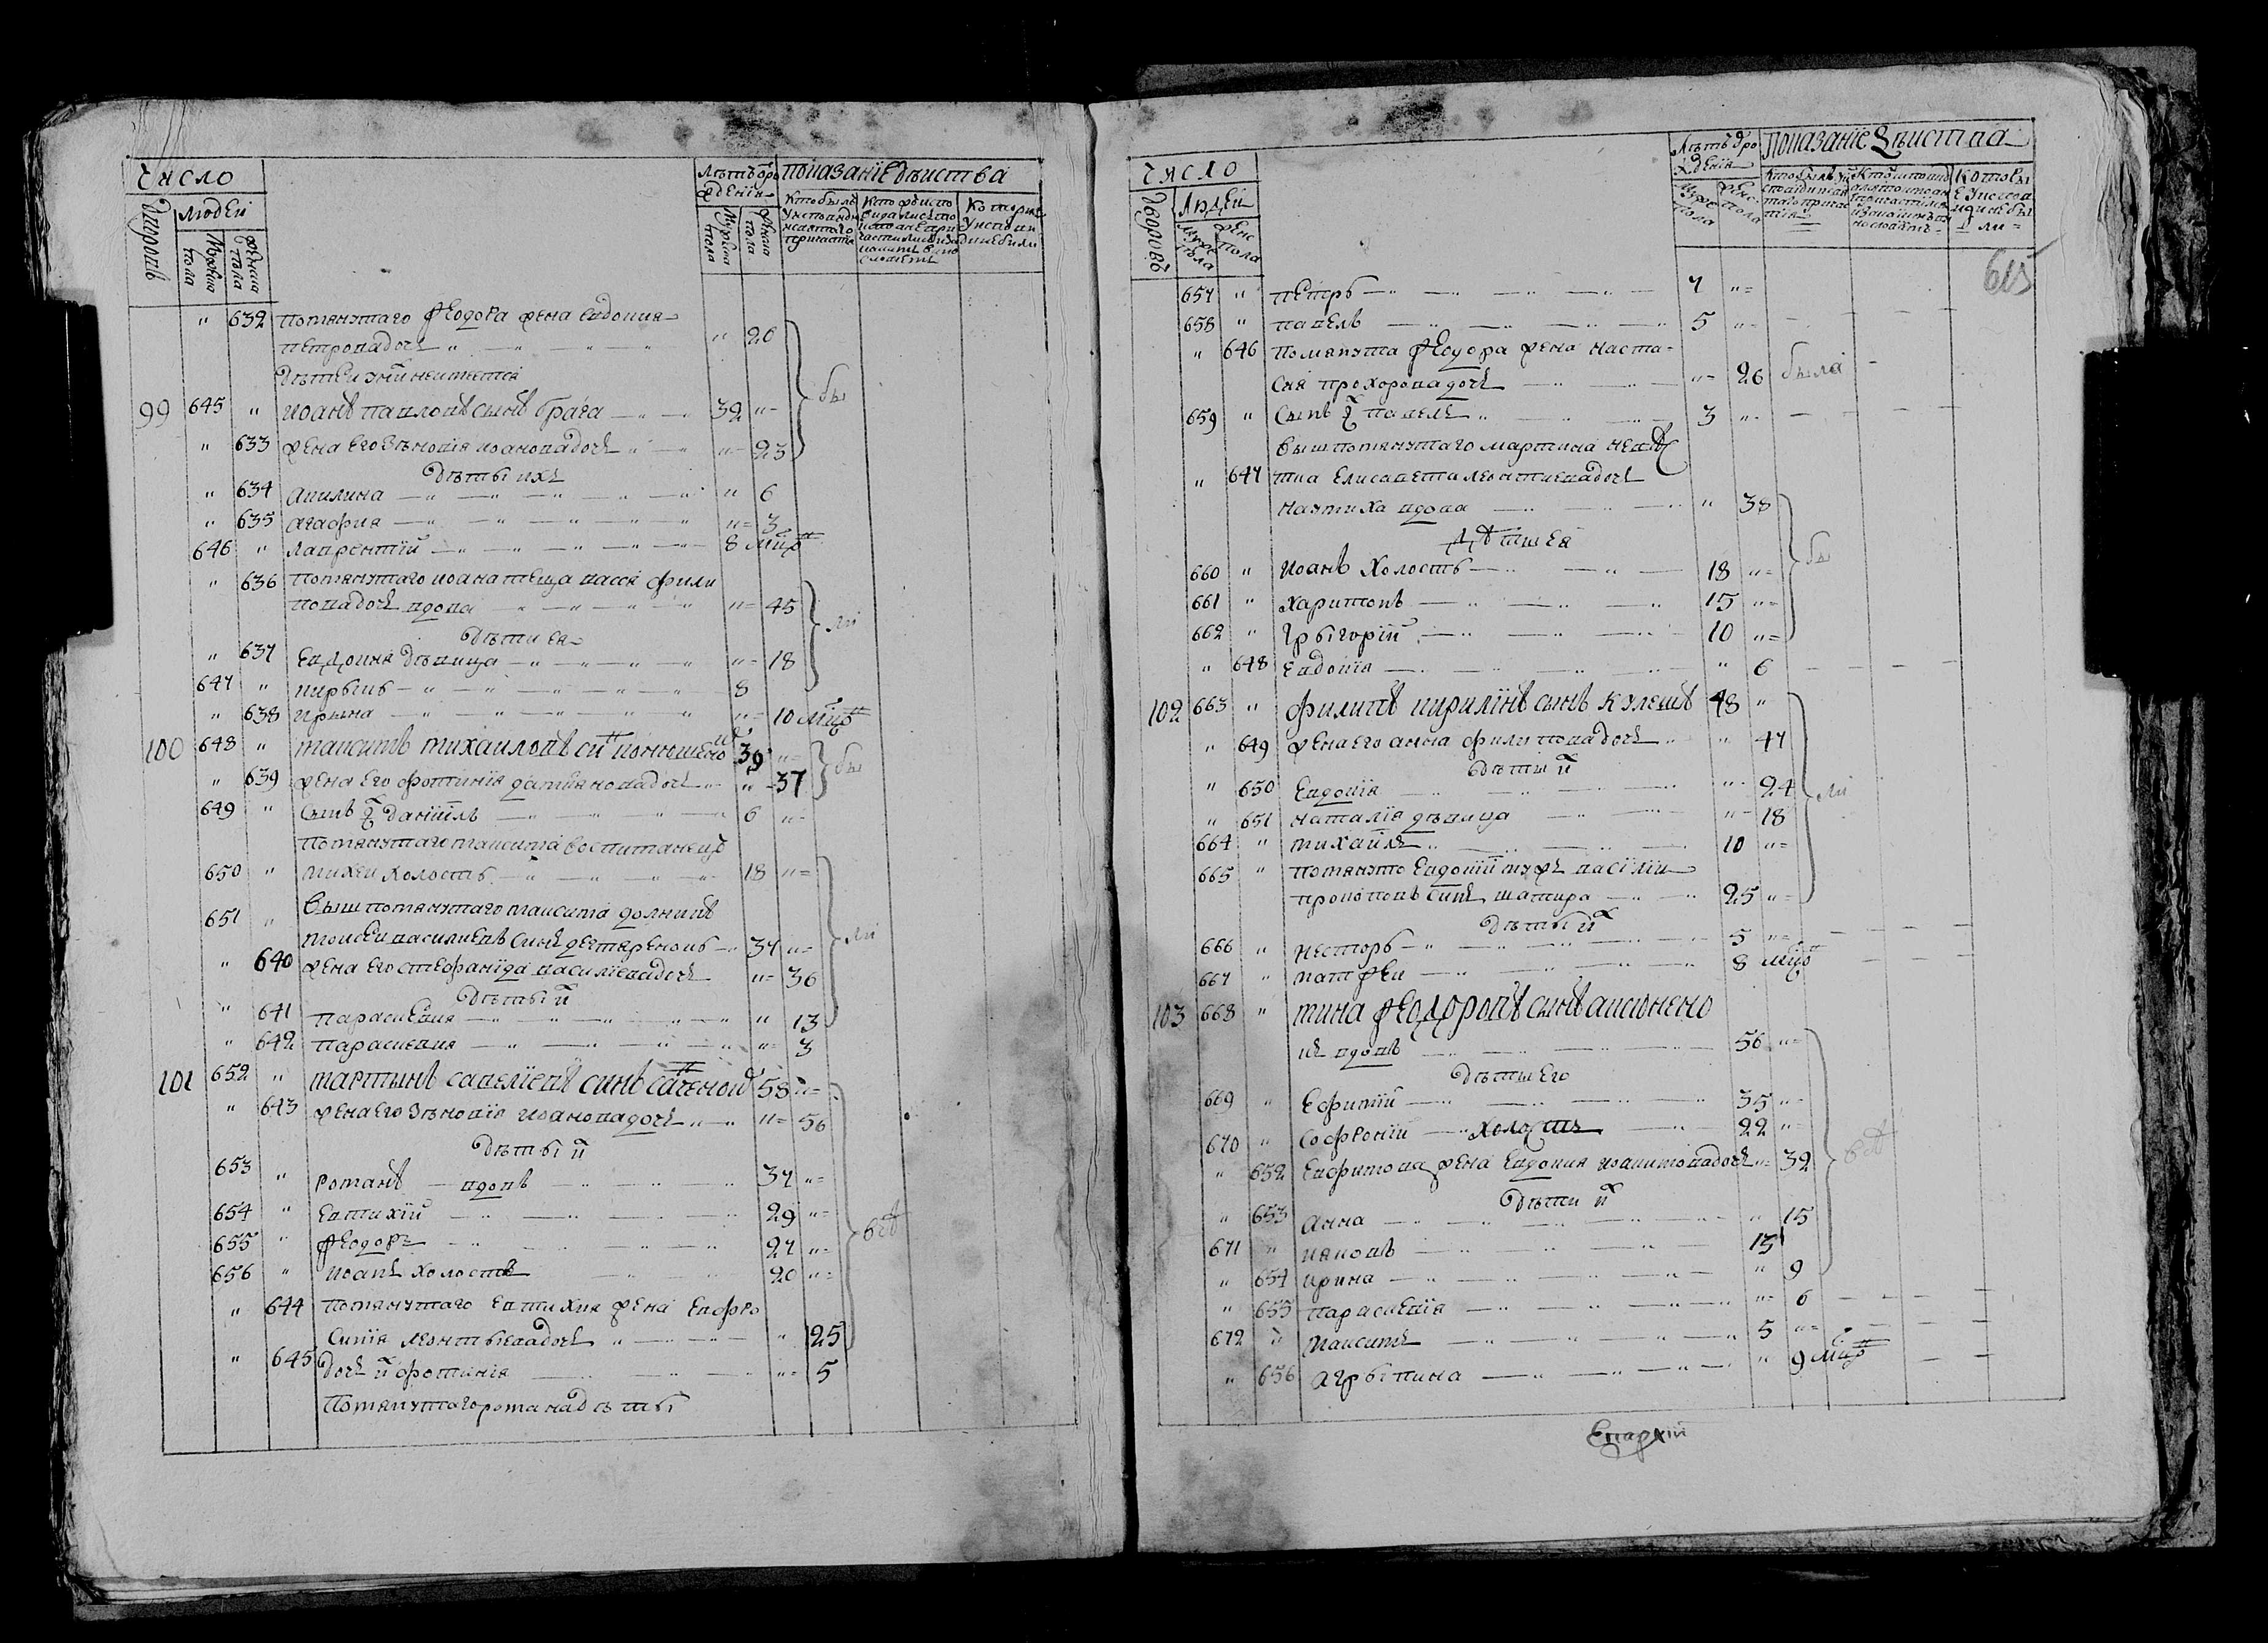 Число
Дворовъ
Людей
Мужеска пола
Женска пола
Лѣтъ от рождения
Мужска пола
Женска пола
Показаніе Действа
Кто были у исповеди и святого причастія
Которие у исповеди не были
" 632 помянутаго Феодора жена Евдокия
Петрова дочь " 20
дѣтей у ниѣ неимеется
99 645 " Иоанъ Павловъ сынъ Брага 32 "
" 633 жена его Зѣновія Иоанова дочь " 23
бы
Дѣты ихъ
" 634 Акилина " 6
" 635 Агафия " 3
646 " Лаврентій 8 мцъ
" 636 помянутаго Иоана теща Вассa Фили
пова дочь вдова " 45
Дѣти ея
" 637 Евдокия дѣвица " 18
647 " Кирыкъ 8
ли
" 638 Ирына " 10 мцъ
100 648 " Максимъ Михайловъ сн 39 "
" 639 жена его Фотинія Дамяновадочь " 37
бы
649 " Сынъ их Даніилъ 6 "
помянутаго Максима воспитанецъ
650 " Михей холостъ 18 "
651 " Вышпомянутаго Максима
Моисей Василиевъ синъ Дегтяренокъ 37 "
" 640 жена его Стефанида Василиевадочь " 36
Дѣты иx
" 641 Параскевия " 13
" 642 Параскевия " 3
ли
101 652 " Мартынъ Савелиевъ синъ 58 "
" 643 жена его Зѣновія Иоановадочь " 56
Дѣты иx
653 " Романъ вдовъ 37 "
654 " Евтихій 29 "
655 " Феодоръ 27 "
656 " Иоанъ холостъ 20 "
" 644 помянутаго Евтихия жена Евфро
синія Леонтьева дочь " 25
" 645 дочь их Фотинія " 5
Помянутаго Романа дѣты
Число
Дворовъ
Людей
Мужс. пола
Женс. пола
Лѣтъ от рождения
Показаніе Действа
615
657 " Петръ 7 "
658 " Павелъ 5 "
" 646 Помянута Феодора жена Наста-
сия Прохорова дочь " 26 была
659 " Сынъ их Павелъ 3 "
Вышпомянутаго Мартина невѣс
" 647 тка Елисавета Леонтиевадочь
вдова " 38
Дѣти ея
660 " Иоанъ холостъ 18 "
661 " Харитонъ 15 "
662 " Грыгорій 10 "
бы
" 648 Евдокія " 6
102 663 " Филипъ Кирилінъ сынъ Кулешъ 48 "
" 649 жена его Анна Филиповадочь " 47
Дѣти иx
" 650 Евдокія " 24
" 651 Наталія дѣвица " 18
664 " Михайлъ 10 "
665 " помянуто Евдокии мужъ Василий
Прокоповъ синъ Шапира 25 "
ли
Дѣты иx
666 " Несторъ 5 "
667 " Матфей 8 мцъ
103 668 " Мина Феодоровъ сынъ Аксюнено
къ вдовъ 56 "
Дѣти его
669 " Ефимій 35 "
670 " Софроній холостъ 22 "
" 652 Евфимова жена Евдокия Иоакимовадочь " 32
Дѣти иx
" 653 Анна " 15
671 " Иаковъ 13
" 654 Ирина " 9
" 655 Параскевія " 6
672 " Максимъ 5 "
" 656 Агрыпина " 9 мцъ
Епархіи